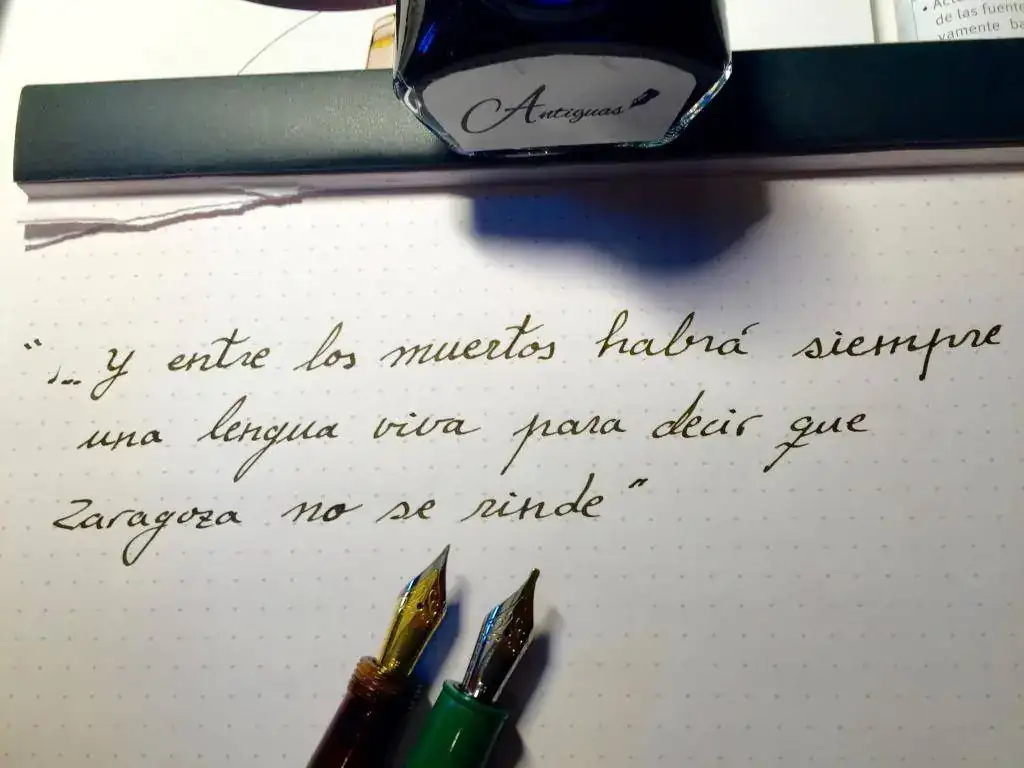 • Act
de las fuente
vamente ba
Antiguas
"... y entre los muertos habrá siempre
una lengua viva para decir que
Zaragoza no se rinde"